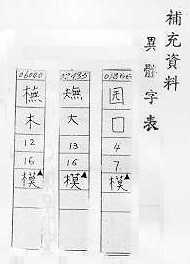 補充資料
異體字表
囗
4
7
模▲
大
13
16
模▲
橅
木
12
16
模▲